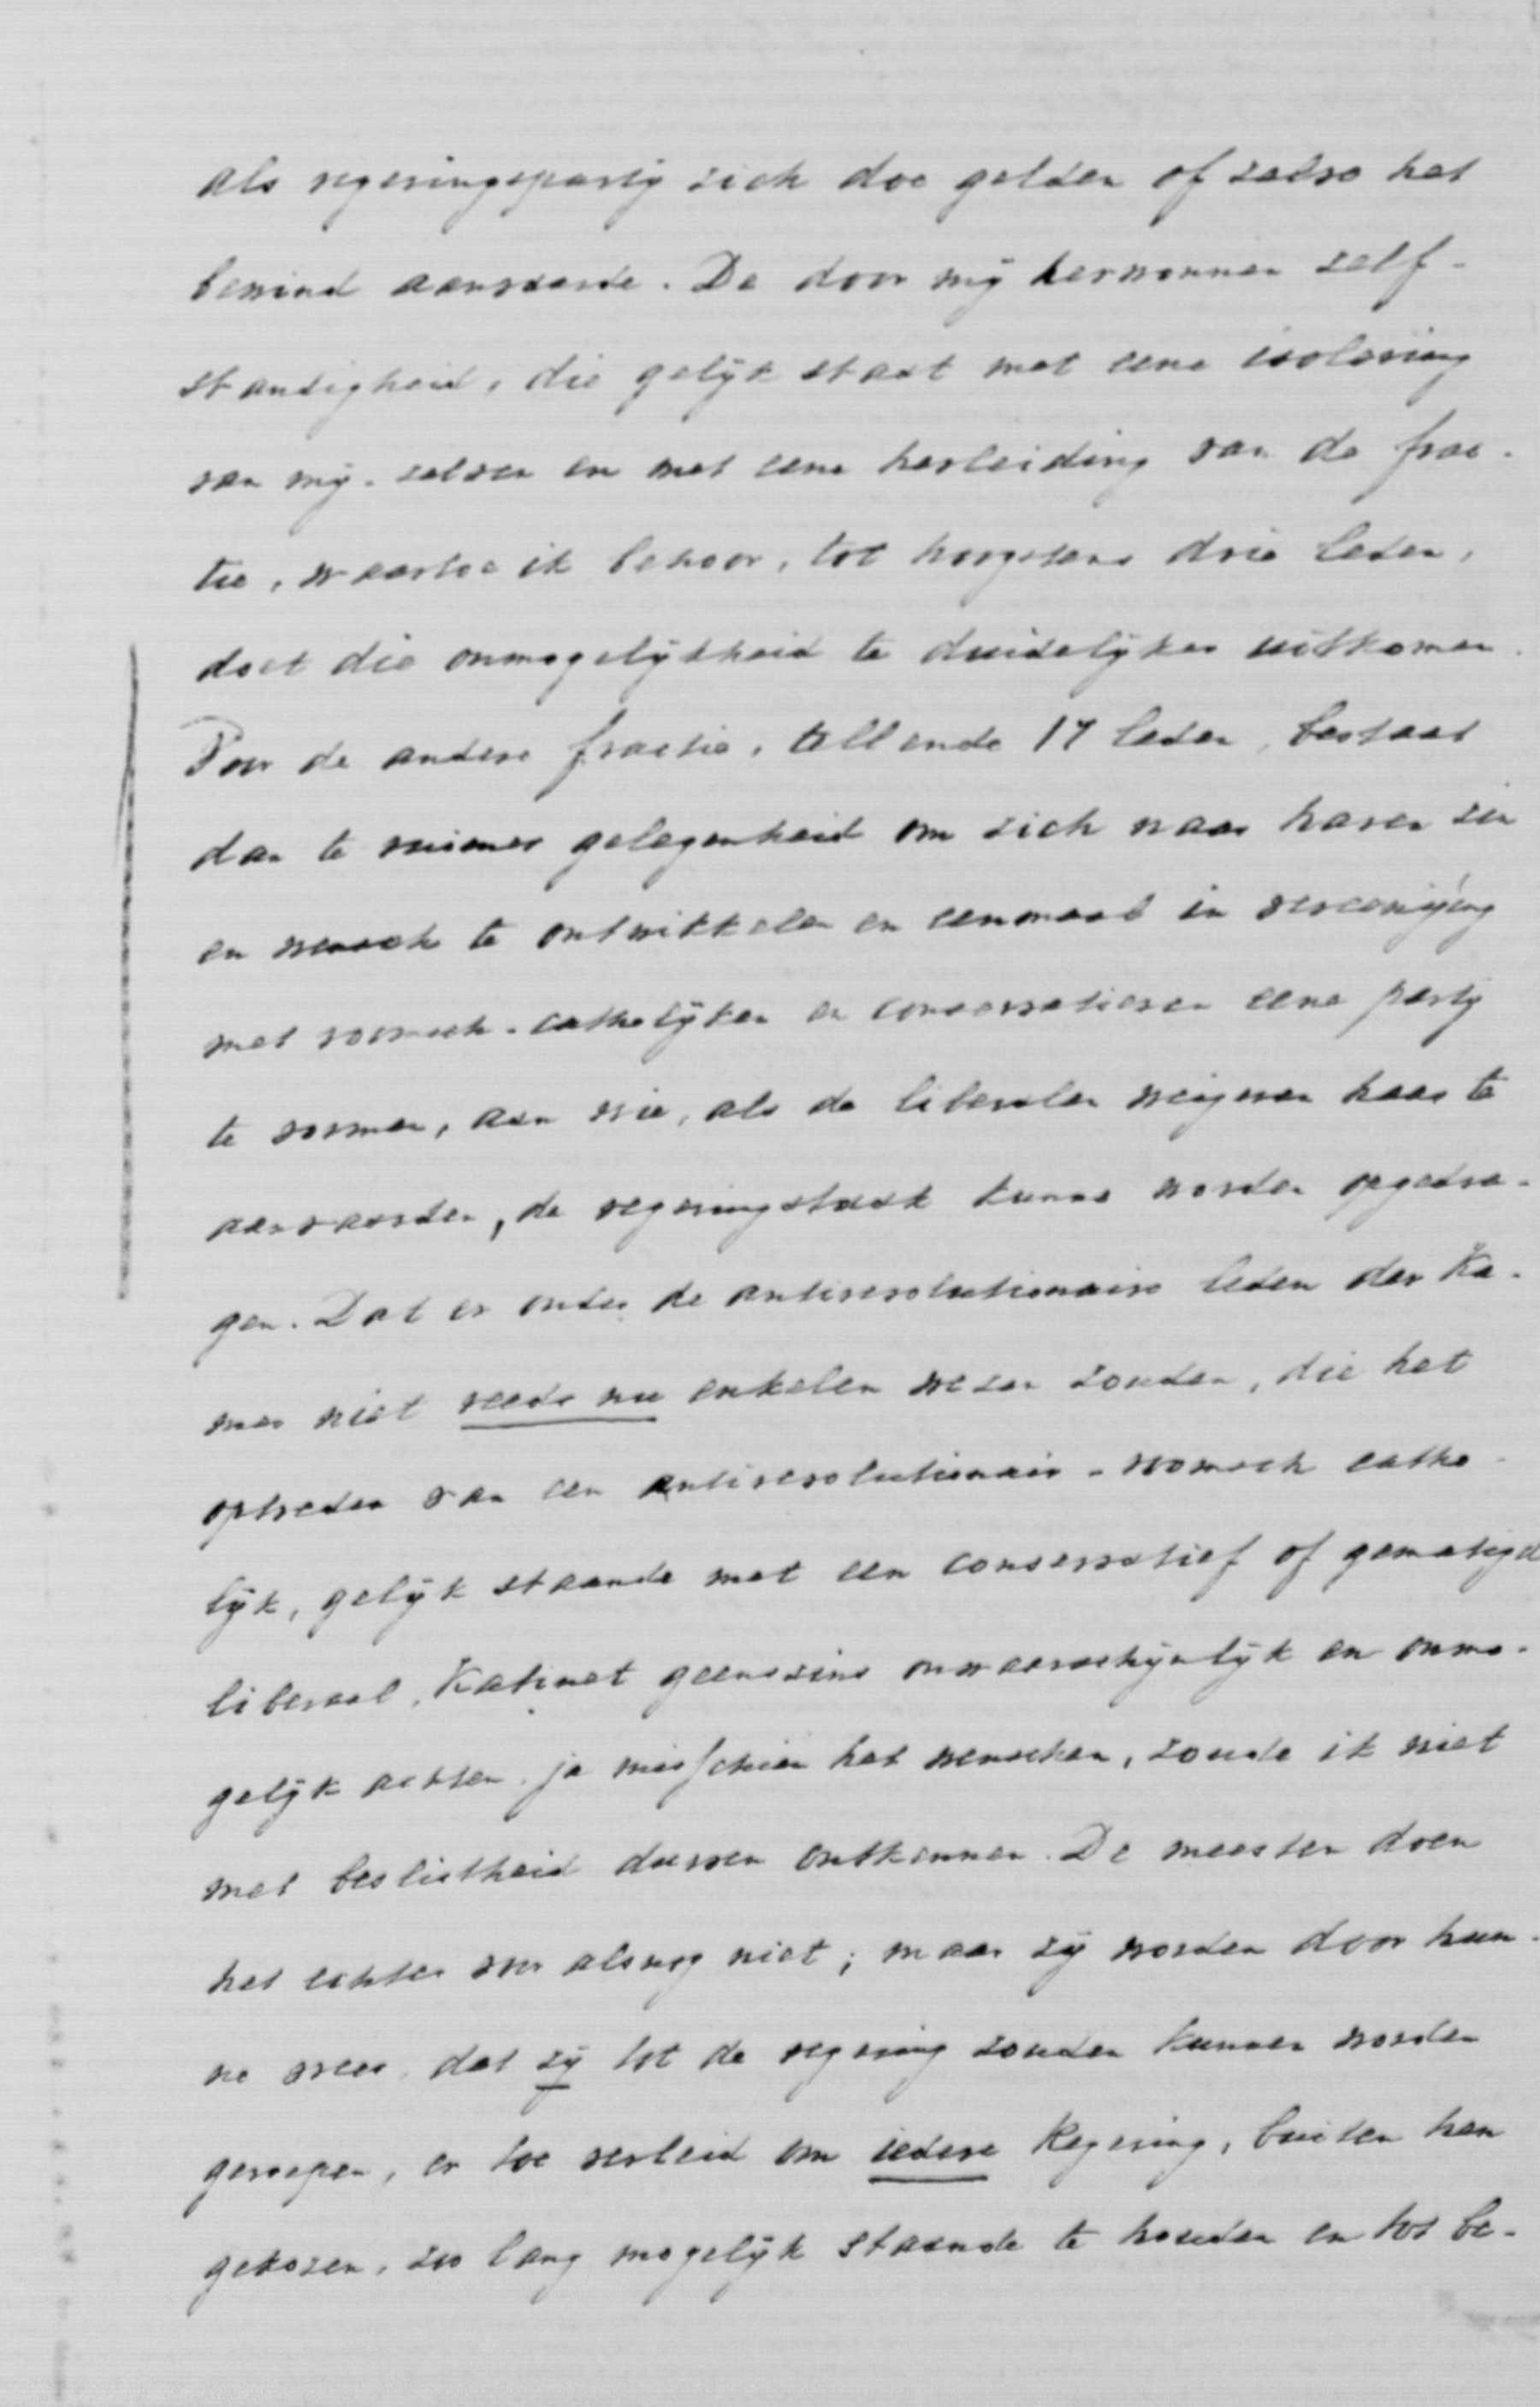 als regeringspartij zich doe gelden of zelve het
bewind aanvaarde. De door mij herwonnen zelf-
standigheid, die gelijk staat met eene isolering
van mij-zelven en met eene herleiding van de frac-
tie, waartoe ik behoor, tot hoogstens drie leden,
doet die onmogelijkheid te duidelijker uitkomen.
Voor de andere fractie, tellende 17 leden, bestaat
dan te ruimer gelegenheid om zich naar haren zin
en wensch te ontwikkelen en eenmaal in vereeniging
met roomsch-catholijken en conservatieven eene partij
te vormen, aan wie, als de liberalen weigeren haar te
aanvaarden, de regeringstaak kunne worden opgedra-
gen. Dat er onder de antirevolutionaire leden der Ka-
mer niet reeds nu enkelen wezen zouden, die het
optreden van een antirevolutionair-roomsch catho-
lijk, gelijk staande met een conservatief of gematigd
liberaal, Kabinet geenszins onwaarschijnlijk en onmo-
gelijk achten, ja misschien het wenschen, zoude ik niet
met beslistheid durven ontkennen. De meesten doen
het echter voor alsnog niet; maar zij worden door hun-
ne vrees, dat zij tot de regering zouden kunnen worden
geroepen, er toe verleid om iedere Regering, buiten hen
gekozen, zoo lang mogelijk staande te houden en tot be-